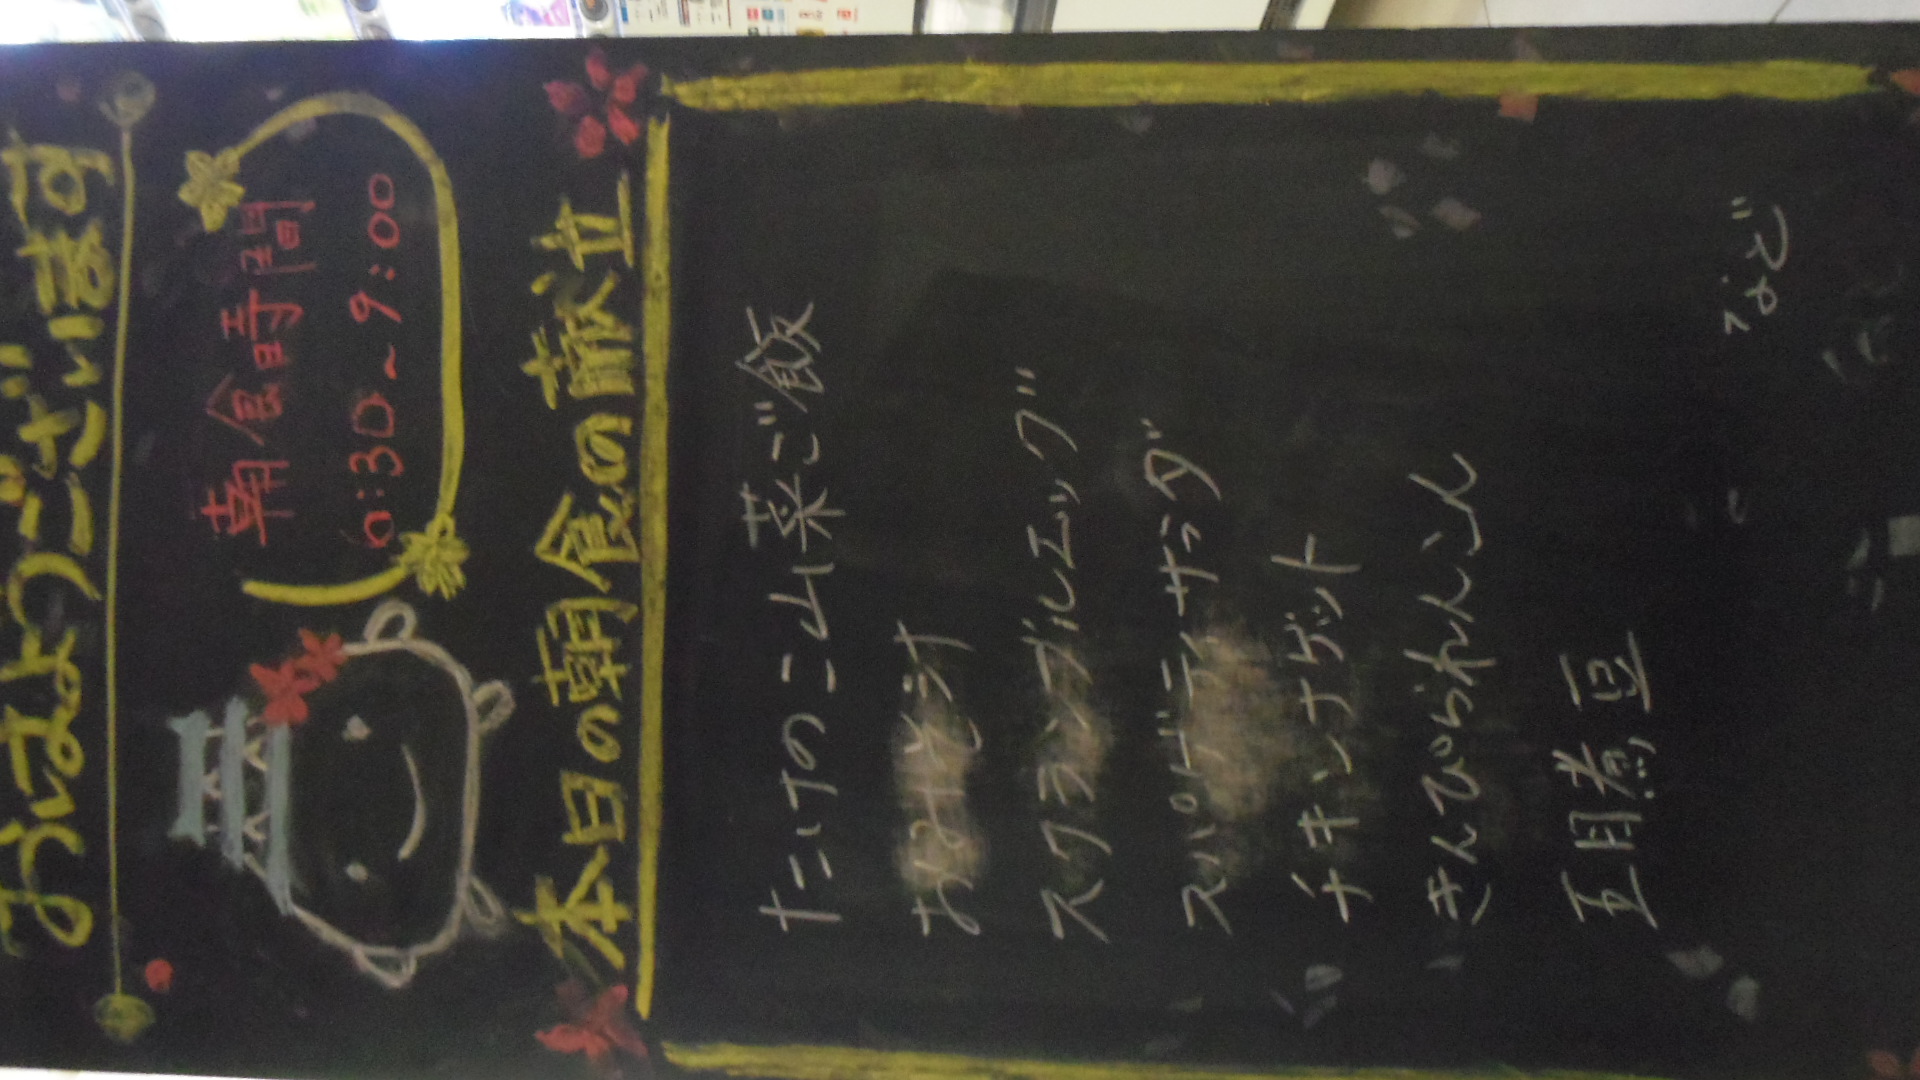 おはようございます
朝食時間
6:30~9:00
本日の朝食の献立
たけのこ山菜ご飯
おみそ汁
スクランブルエッグ
スパゲティサラダ
チキンナゲット
きんぴられんこん
五目煮豆
など